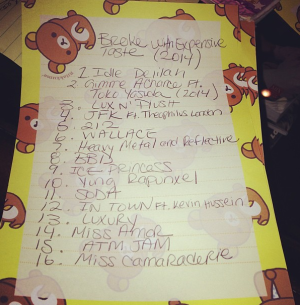 Broke with Expensive
Taste
(2014)
1. Idle Delilah
2. Gimme A Chance Ft.
(2014)
3. Lux N' Plush
4. JFK Ft. Theophilus London
5. 212
6. WALLACE
7. Heavy Metal and Reflective
8. BBD
9. ICE PRINCESS
10. Yung Rapunxel
11. SODA
12. IN TOWN Ft. Kevin Hussein
13. LUXURY
14. Miss Amor
15. ATM JAM
16. Miss Camaraderie